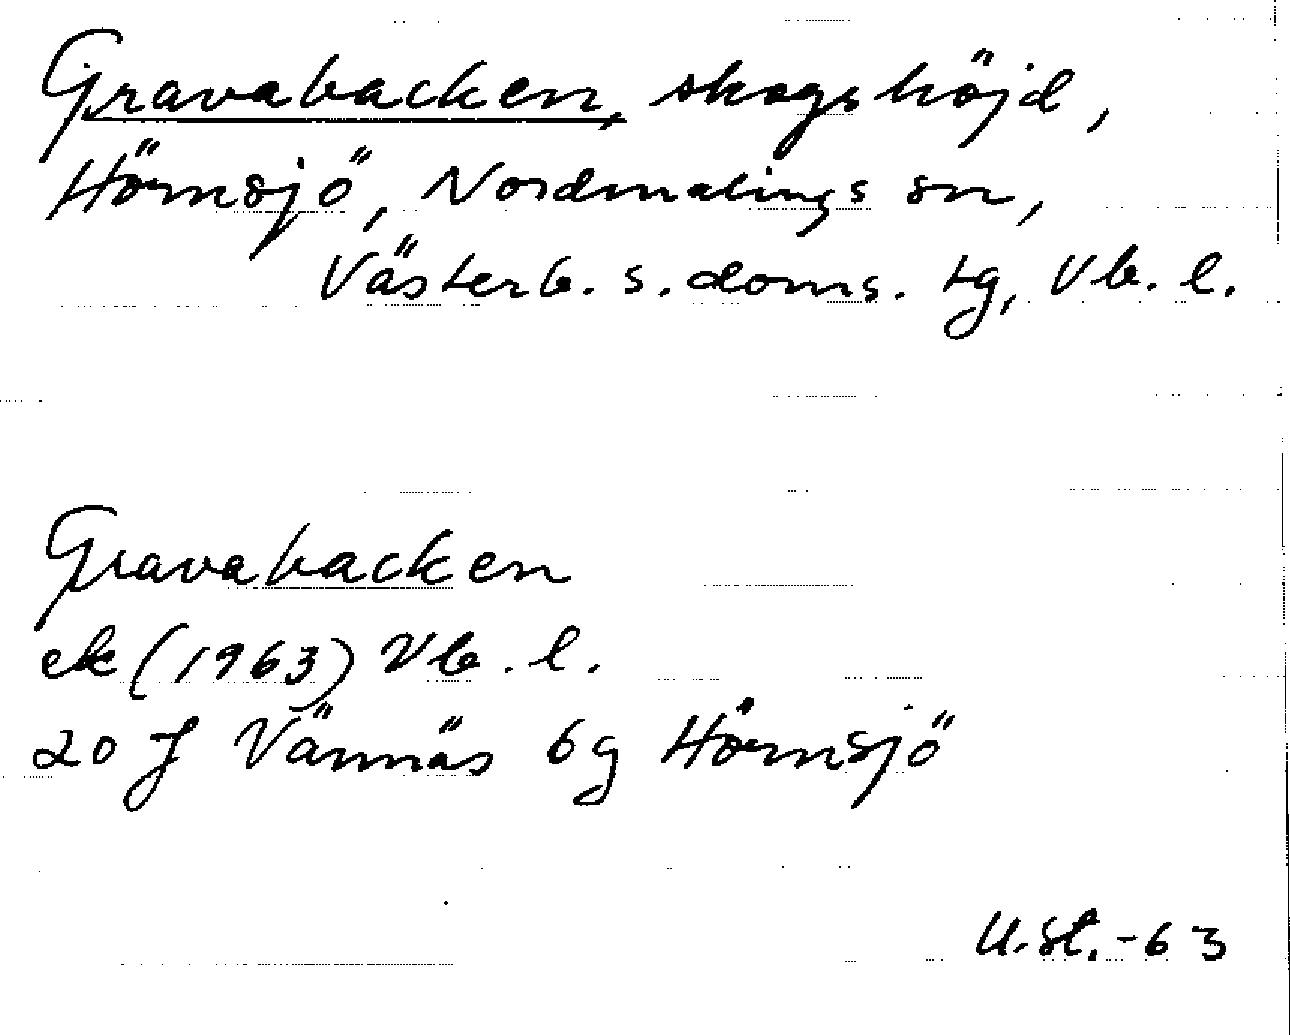 Gravabacken, skogshöjd,
Hörnsjö, Nordmalings sn,
Västerb. s. doms. tg, Vb. l.
Gravabacken
ek (1963) Vb. l.
20 J Vännäs 6g Hörnsjö
U.St. -63